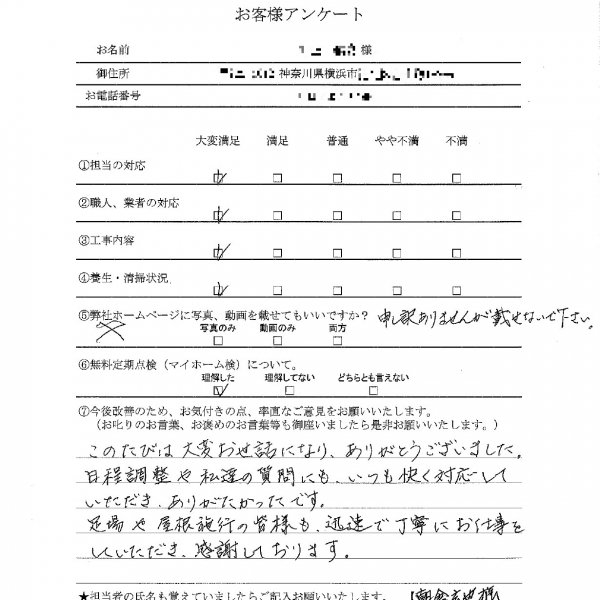 お客様アンケート
お名前 様
御住所 神奈川県横浜市
お電話番号
大変満足 満足 普通 やや不満 不満
①担当の対応
②職人、業者の対応
③工事内容
④養生・清掃状況
⑤弊社ホームページに写真、動画を載せてもいいですか? 申し訳ありませんが載せないで下さい。
写真のみ 動画のみ 両方
⑥無料定期点検（マイホーム検）について。
理解した 理解してない どちらとも言えない
⑦今後改善のため、お気付きの点、率直なご意見をお願いいたします。
（お叱りのお言葉、お褒めのお言葉等も御座いましたら是非お願いいたします。）
このたびは大変お世話になり、ありがとうございました。
日程調整や私達の質問にも、いつも快く対応して
いただき、ありがたかったです。
足場や屋根施行の皆様も、迅速で丁寧にお仕事を
していただき、感謝しております。
★担当者の氏名も覚えていましたらご記入お願いいたします。